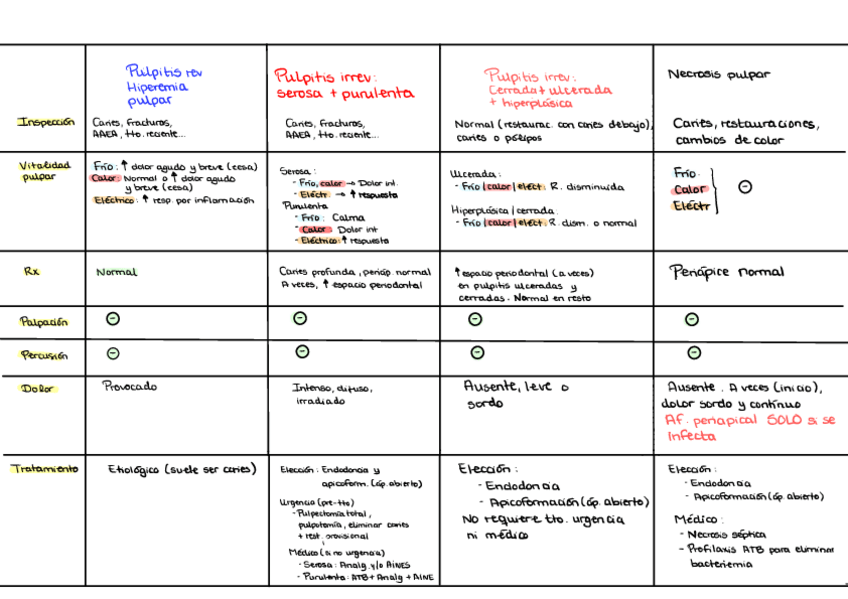 Pulpitis rev
Hiperemia
pulpar
Pulpitis irrev:
serosa + purulenta
Pulpitis irrev:
Cerrada + ulcerada
+ hiperplásica
Necrosis pulpar
Inspección
Caries, fracturas,
AAEA, tto. reciente...
Caries, fracturas,
AAEA, tto. reciente...
Normal (restaurac. con caries debajo),
caries o pólipos
Caries, restauraciones,
cambios de color
Vitalidad
pulpar
Frío: ↑ dolor agudo y breve (cesa)
Calor: Normal o ↑ dolor agudo
y breve (cesa)
Eléctrico: ↑ resp. por inflamación
Serosa:
- Frío, calor → Dolor int.
- Eléctr. → ↑ respuesta
Purulenta
- Frío: Calma
- Calor: Dolor int
- Eléctrico: ↑ respuesta
Ulcerada:
- Frío | calor | eléct: R. disminuida
Hiperplásica | cerrada:
- Frío | calor | eléct: R. dism. o normal
Frío
Calor
Eléctr
-
Rx
Normal
Caries profunda, periáp. normal
A veces, ↑ espacio periodontal
↑ espacio periodontal (a veces)
en pulpitis ulceradas y
cerradas. Normal en resto
Periápice normal
Palpación
-
-
-
-
Percusión
-
-
-
-
Dolor
Provocado
Intenso, difuso,
irradiado
Ausente, leve o
sordo
Ausente. A veces (inicio),
dolor sordo y continuo
Af. periapical SOLO si se
infecta
Tratamiento
Etiológico (suele ser caries)
Elección: Endodoncia y
apicoform. (áp. abierto)
Urgencia (pre-tto)
- Pulpectomía total,
pulpotomía, eliminar caries
+ rest. provisional
Médico (si no urgencia)
- Serosa: Analg. y/o AINES
- Purulenta: ATB + Analg + AINE
Elección:
- Endodoncia
- Apicoformación (áp. abierto)
No requiere tto. urgencia
ni médico
Elección:
- Endodoncia
- Apicoformación (áp. abierto)
Médico:
- Necrosis séptica
- Profilaxis ATB para eliminar
bacteriemia